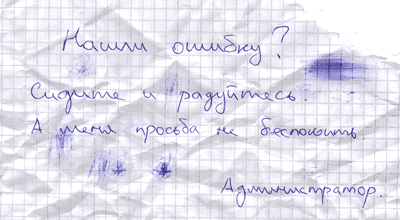 Нашли ошибку?
Сидите и радуйтесь.
А меня просьба не беспокоить.
Администратор.